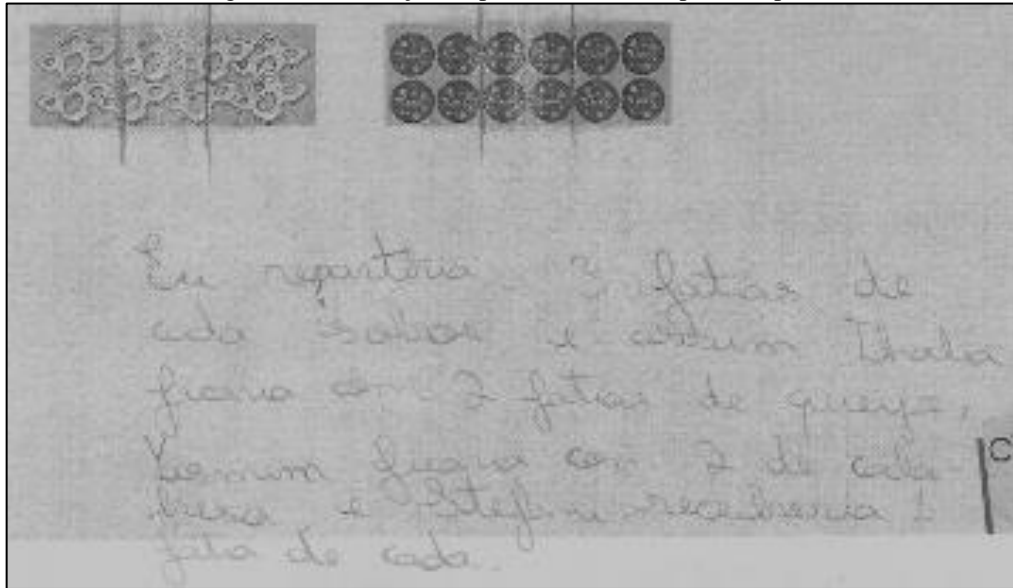 Eu repartiria 3 fatias de
cada sabor e assim Thalia
ficaria com 2 fatias de queijo,
Yasmim ficaria com 2 de cala
bresa e Stefani receberia 1
fatia de cada.
C